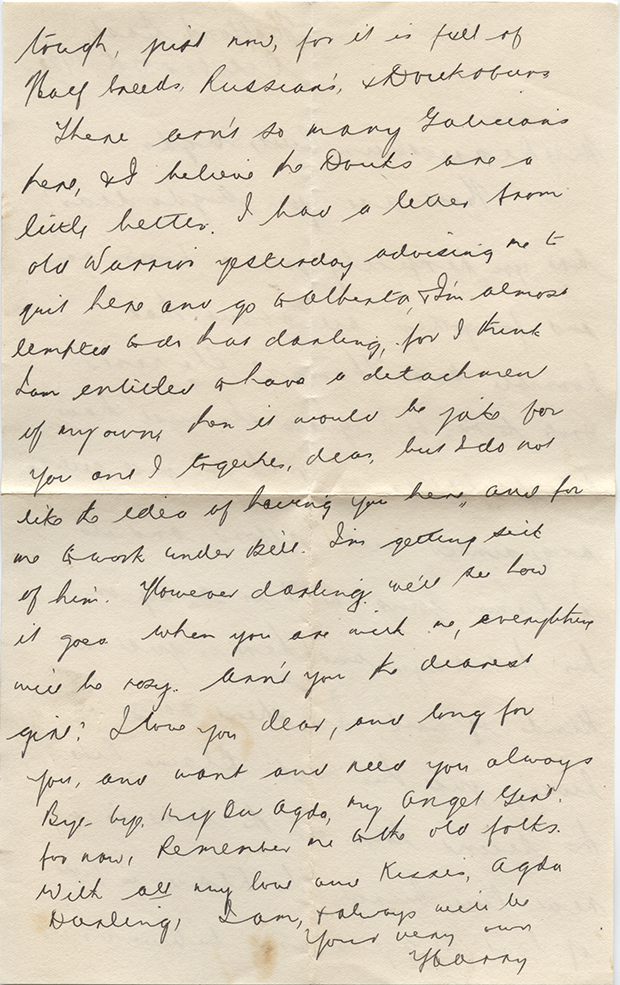 tough, just now, for it is full of
Half breeds, Russian's, & Doukobours
There arn't so many Galicians
here, & I believe the Douks are a
little better. I had a letter from
old Warrior yesterday advising me to
quit here and go to Alberta, & I'm almost
tempted to do that darling, for I think
I am entitled to have a detachment
of my own, then it would be jake for
you and I together, dear, but I do not
like the idea of having you here, and for
me to work under Bill. I'm getting sick
of him. However darling we'll see how
it goes when you are with me, everything
will be rosy. Arn't you the dearest
girl? I love you dear, and long for
you, and want and need you always
Bye-bye, My Own Agda, my Angel Girl.
for now, Remember me to the old folks.
With all my love and Kisses, Agda
Darling, I am, & always will be
Your very own
Harry